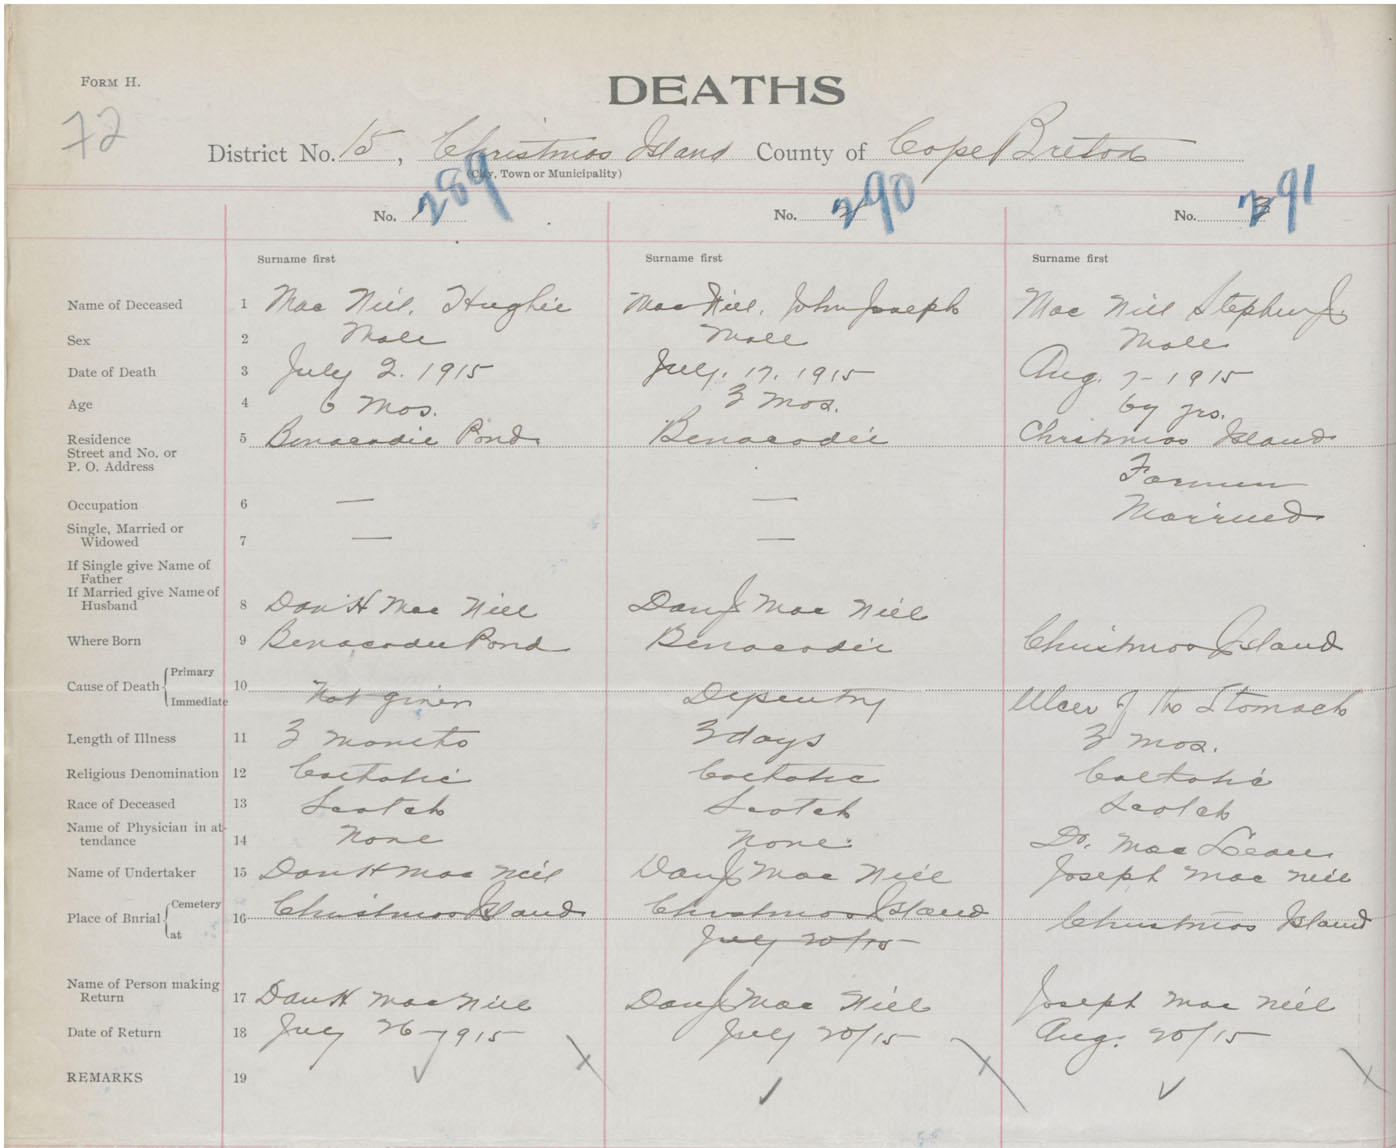 FORM H.
DEATHS
72
District No. 15, Christmas Island County of Cape Breton
(City, Town or Municipality)
No. 1 289 No. 2 290 No. 3 291
Surname first Surname first Surname first
Name of Deceased 1 Mac Niil, Hughie Mac Niil, John Joseph Mac Niil Stephen J
Sex 2 Male Male Male
Date of Death 3 July 2. 1915 July. 17. 1915 Aug. 7 - 1915
Age 4 6 Mos. 3 mos. 69 yrs.
Residence 5 Benacadie Pond Benacadie Christmas Island
Street and No. or
P. O. Address
Farmer
Occupation 6 — —
Married
Single, Married or
Widowed 7 — —
If Single give Name of
Father
If Married give Name of
Husband 8 Dan H Mac Niil Dan J Mac Niil
Where Born 9 Benacadie Pond Benacadie Christmas Island
Cause of Death { Primary
Immediate 10 Not given Dysentry Ulcer of the Stomach
Length of Illness 11 3 months 3 days 3 mos.
Religious Denomination 12 Catholic Catholic Catholic
Race of Deceased 13 Scotch Scotch Scotch
Name of Physician in at-
tendance 14 None None. Dr. Mac Lean
Name of Undertaker 15 Dan H Mac Niil Dan J Mac Niil Joseph Mac Niil
Place of Burial { Cemetery
at 16 Christmas Island Christmas Island Christmas Island
July 20/15
Name of Person making
Return 17 Dan H Mac Niil Dan J Mac Niil Joseph Mac Niil
Date of Return 18 July 26 - 1915 July 20/15 Aug. 20/15
REMARKS 19